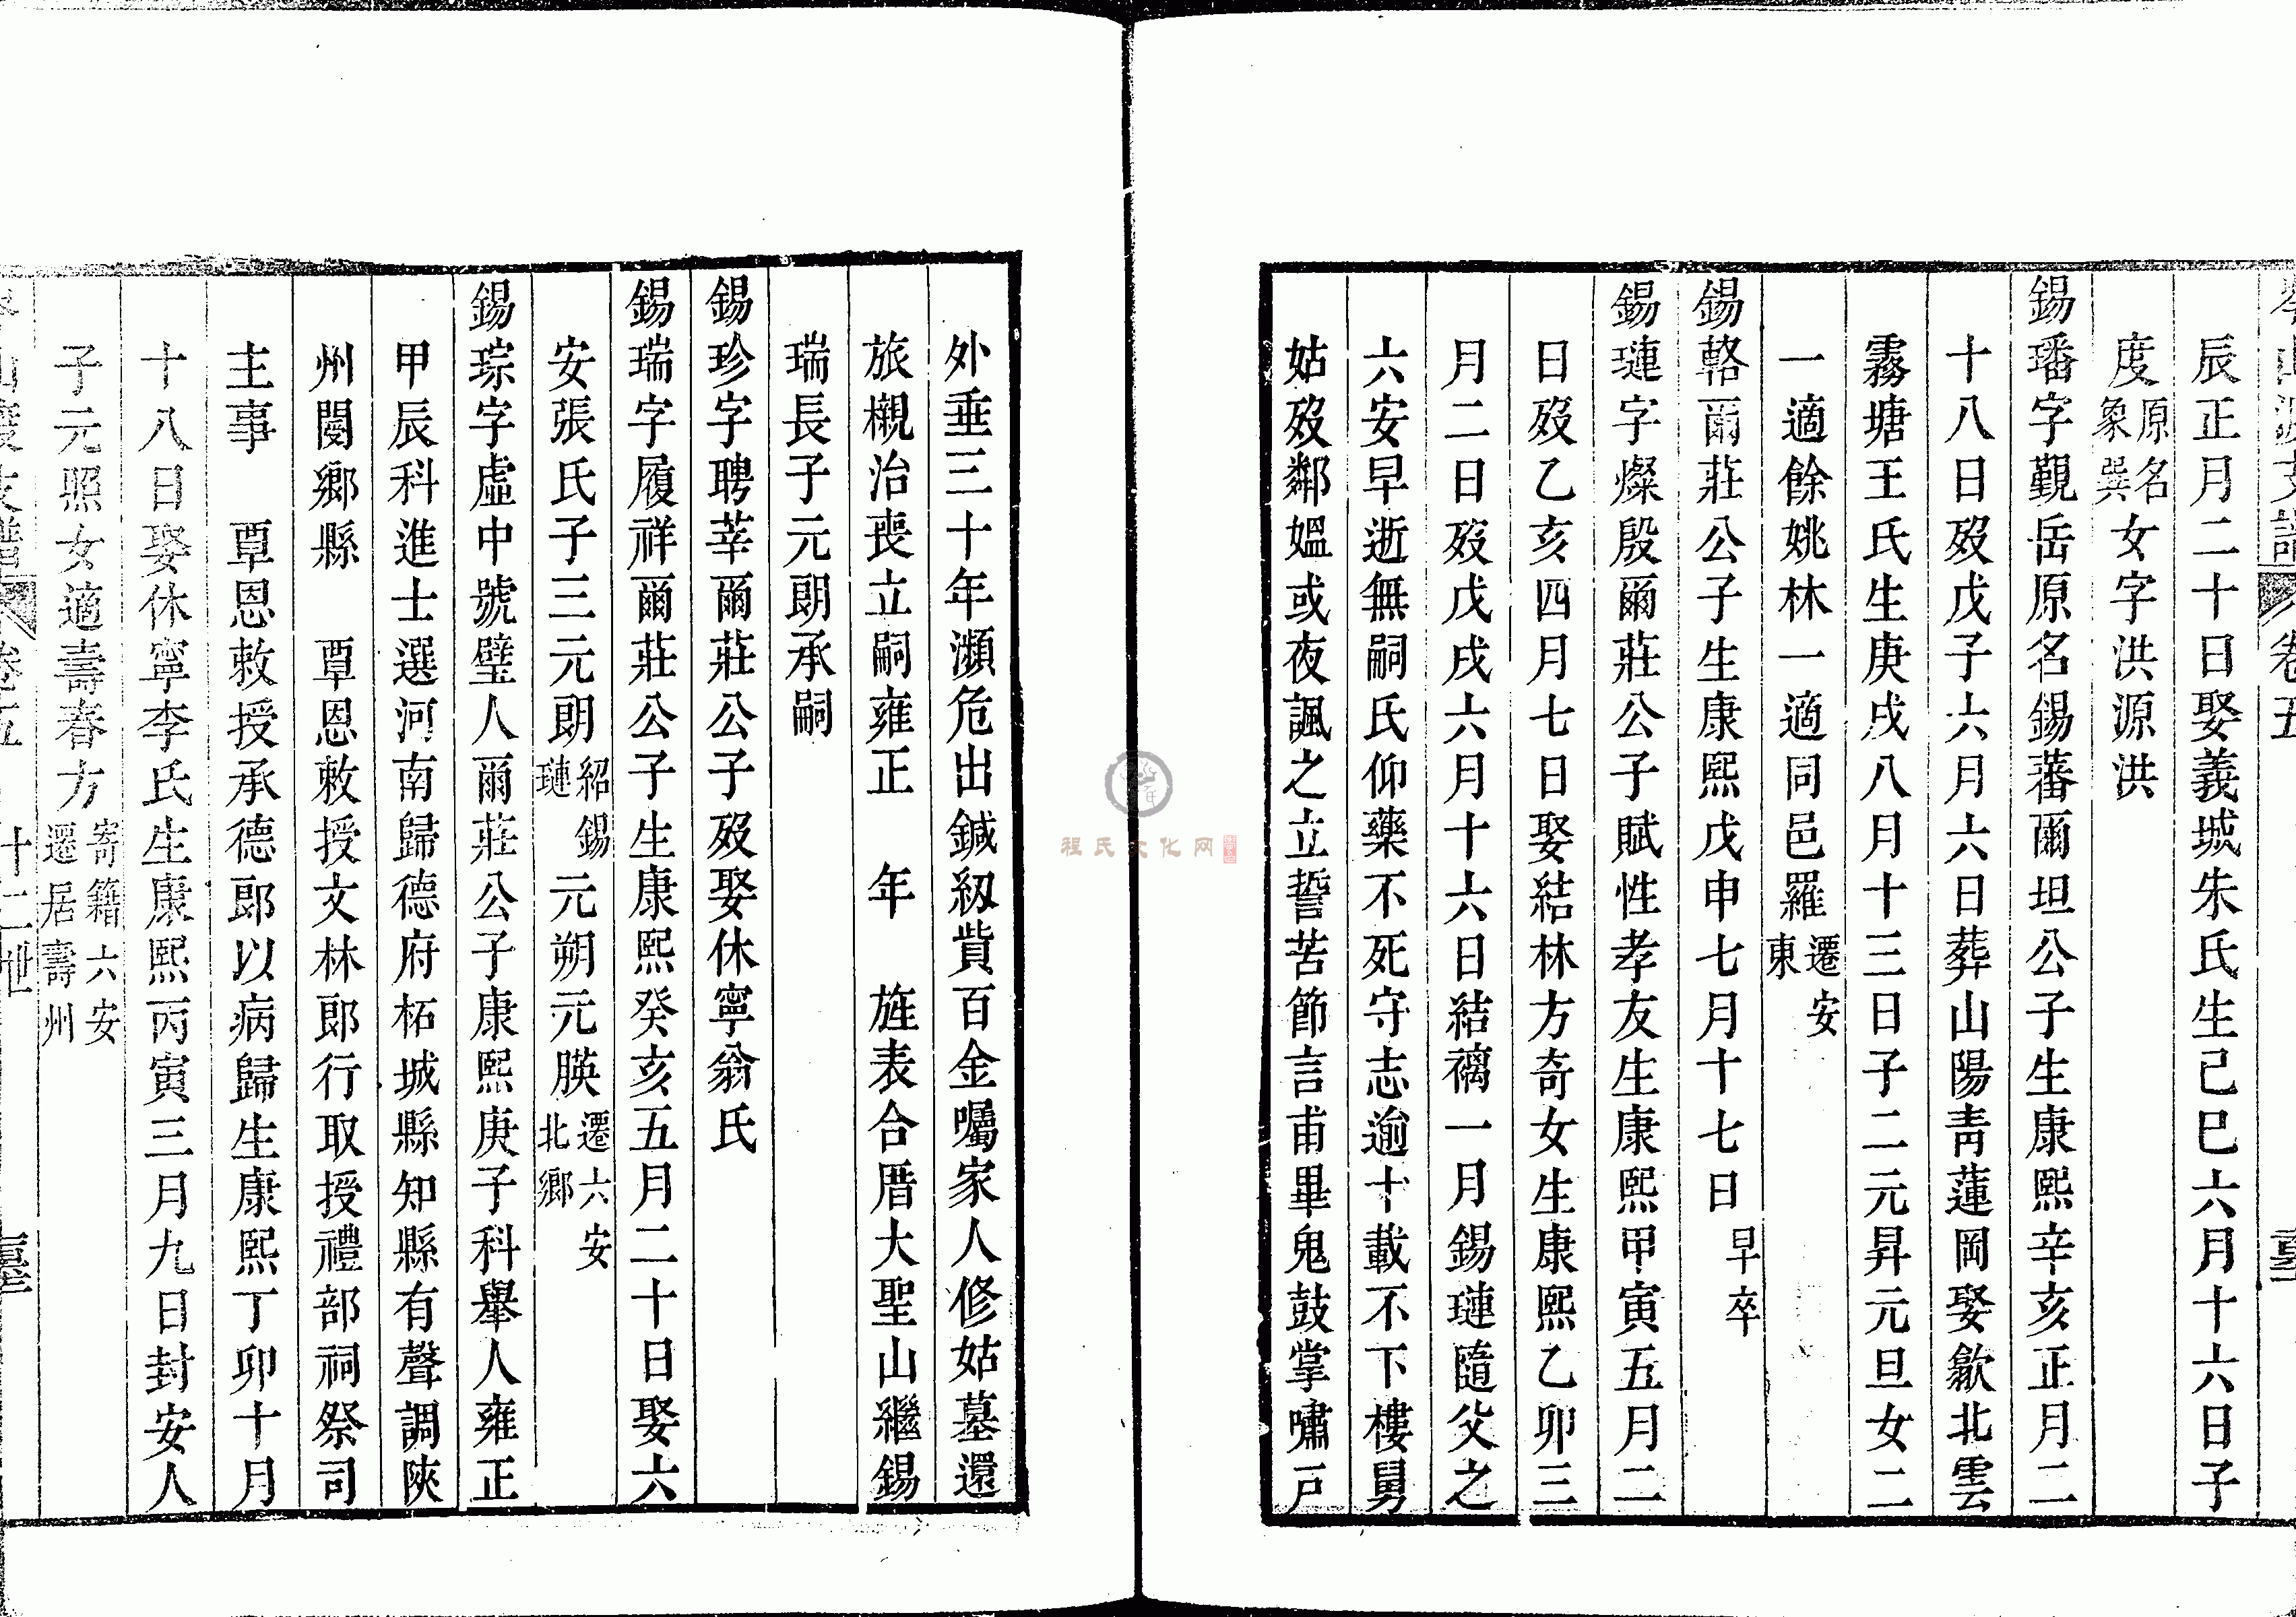 辰正月二十日娶義城朱氏生己巳六月十六日子
度原名象巽女字洪源洪
錫璠字覲岳原名錫蕃爾坦公子生康熙辛亥正月二
十八日歿戊子六月六日葬山陽青蓮岡娶歙北雲
霧塘王氏生庚戌八月十三日子二元昇元旦女二
一適餘姚林一適同邑羅遷東安
錫輅爾莊公子生康熙戊申七月十七日早卒
錫璉字燦殷爾莊公子賦性孝友生康熙甲寅五月二
日歿乙亥四月七日娶結林方奇女生康熙乙卯三
月二日歿戊戌六月十六日結褵一月錫璉隨父之
六安早逝無嗣氏仰藥不死守志逾十載不下樓舅
姑歿鄰媼或夜諷之立誓苦節言甫畢鬼鼓掌嘯戶
外垂三十年瀕危出鍼紉貲百金囑家人修姑墓還
旅櫬治喪立嗣雍正 年 旌表合厝大聖山繼錫
瑞長子元朗承嗣
錫珍字聘莘爾莊公子歿娶休寧翁氏
錫瑞字履祥爾莊公子生康熙癸亥五月二十日娶六
安張氏子三元朗紹錫璉元朔元腰遷六安北鄉
錫琮字虛中號璧人爾莊公子康熙庚子科舉人雍正
甲辰科進士選河南歸德府柘城縣知縣有聲調陝
州閿鄉縣 覃恩敕授文林郎行取授禮部祠祭司
主事 覃恩敕授承德郎以病歸生康熙丁卯十月
十八日娶休寧李氏生康熙丙寅三月九日封安人
子元照女適壽春方寄籍六安遷居壽州
卷五 十二世
程氏文化网